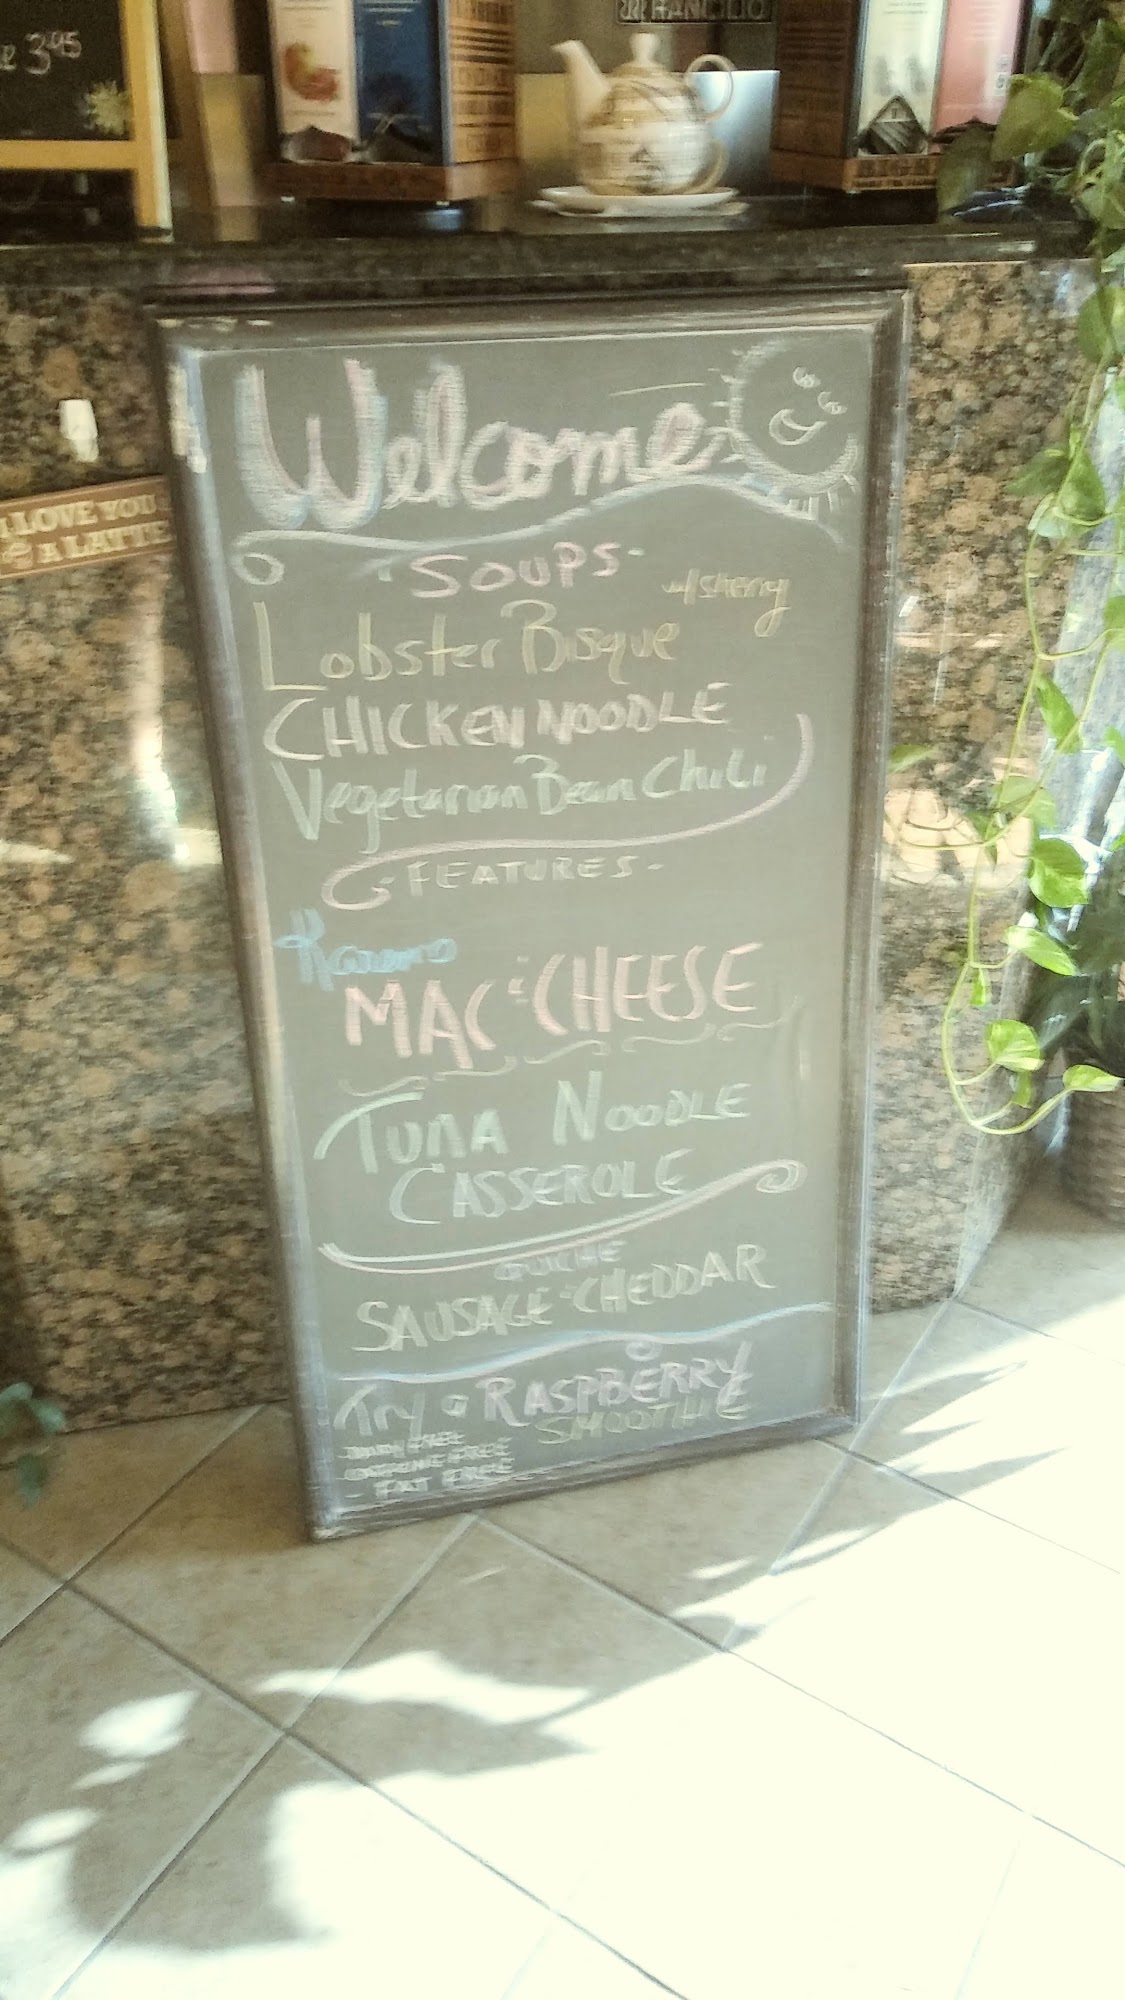 3.95
RANCILIO
I LOVE YOU
A LATTE
Welcome
-SOUPS-
w/ sherry
Lobster Bisque
CHICKEN NOODLE
Vegetarian Bean Chili
-FEATURES-
MAC & CHEESE
TUNA NOODLE
CASSEROLE
QUICHE
SAUSAGE & CHEDDAR
Try a RASPBERRY
SMOOTHIE
- FAT FREE